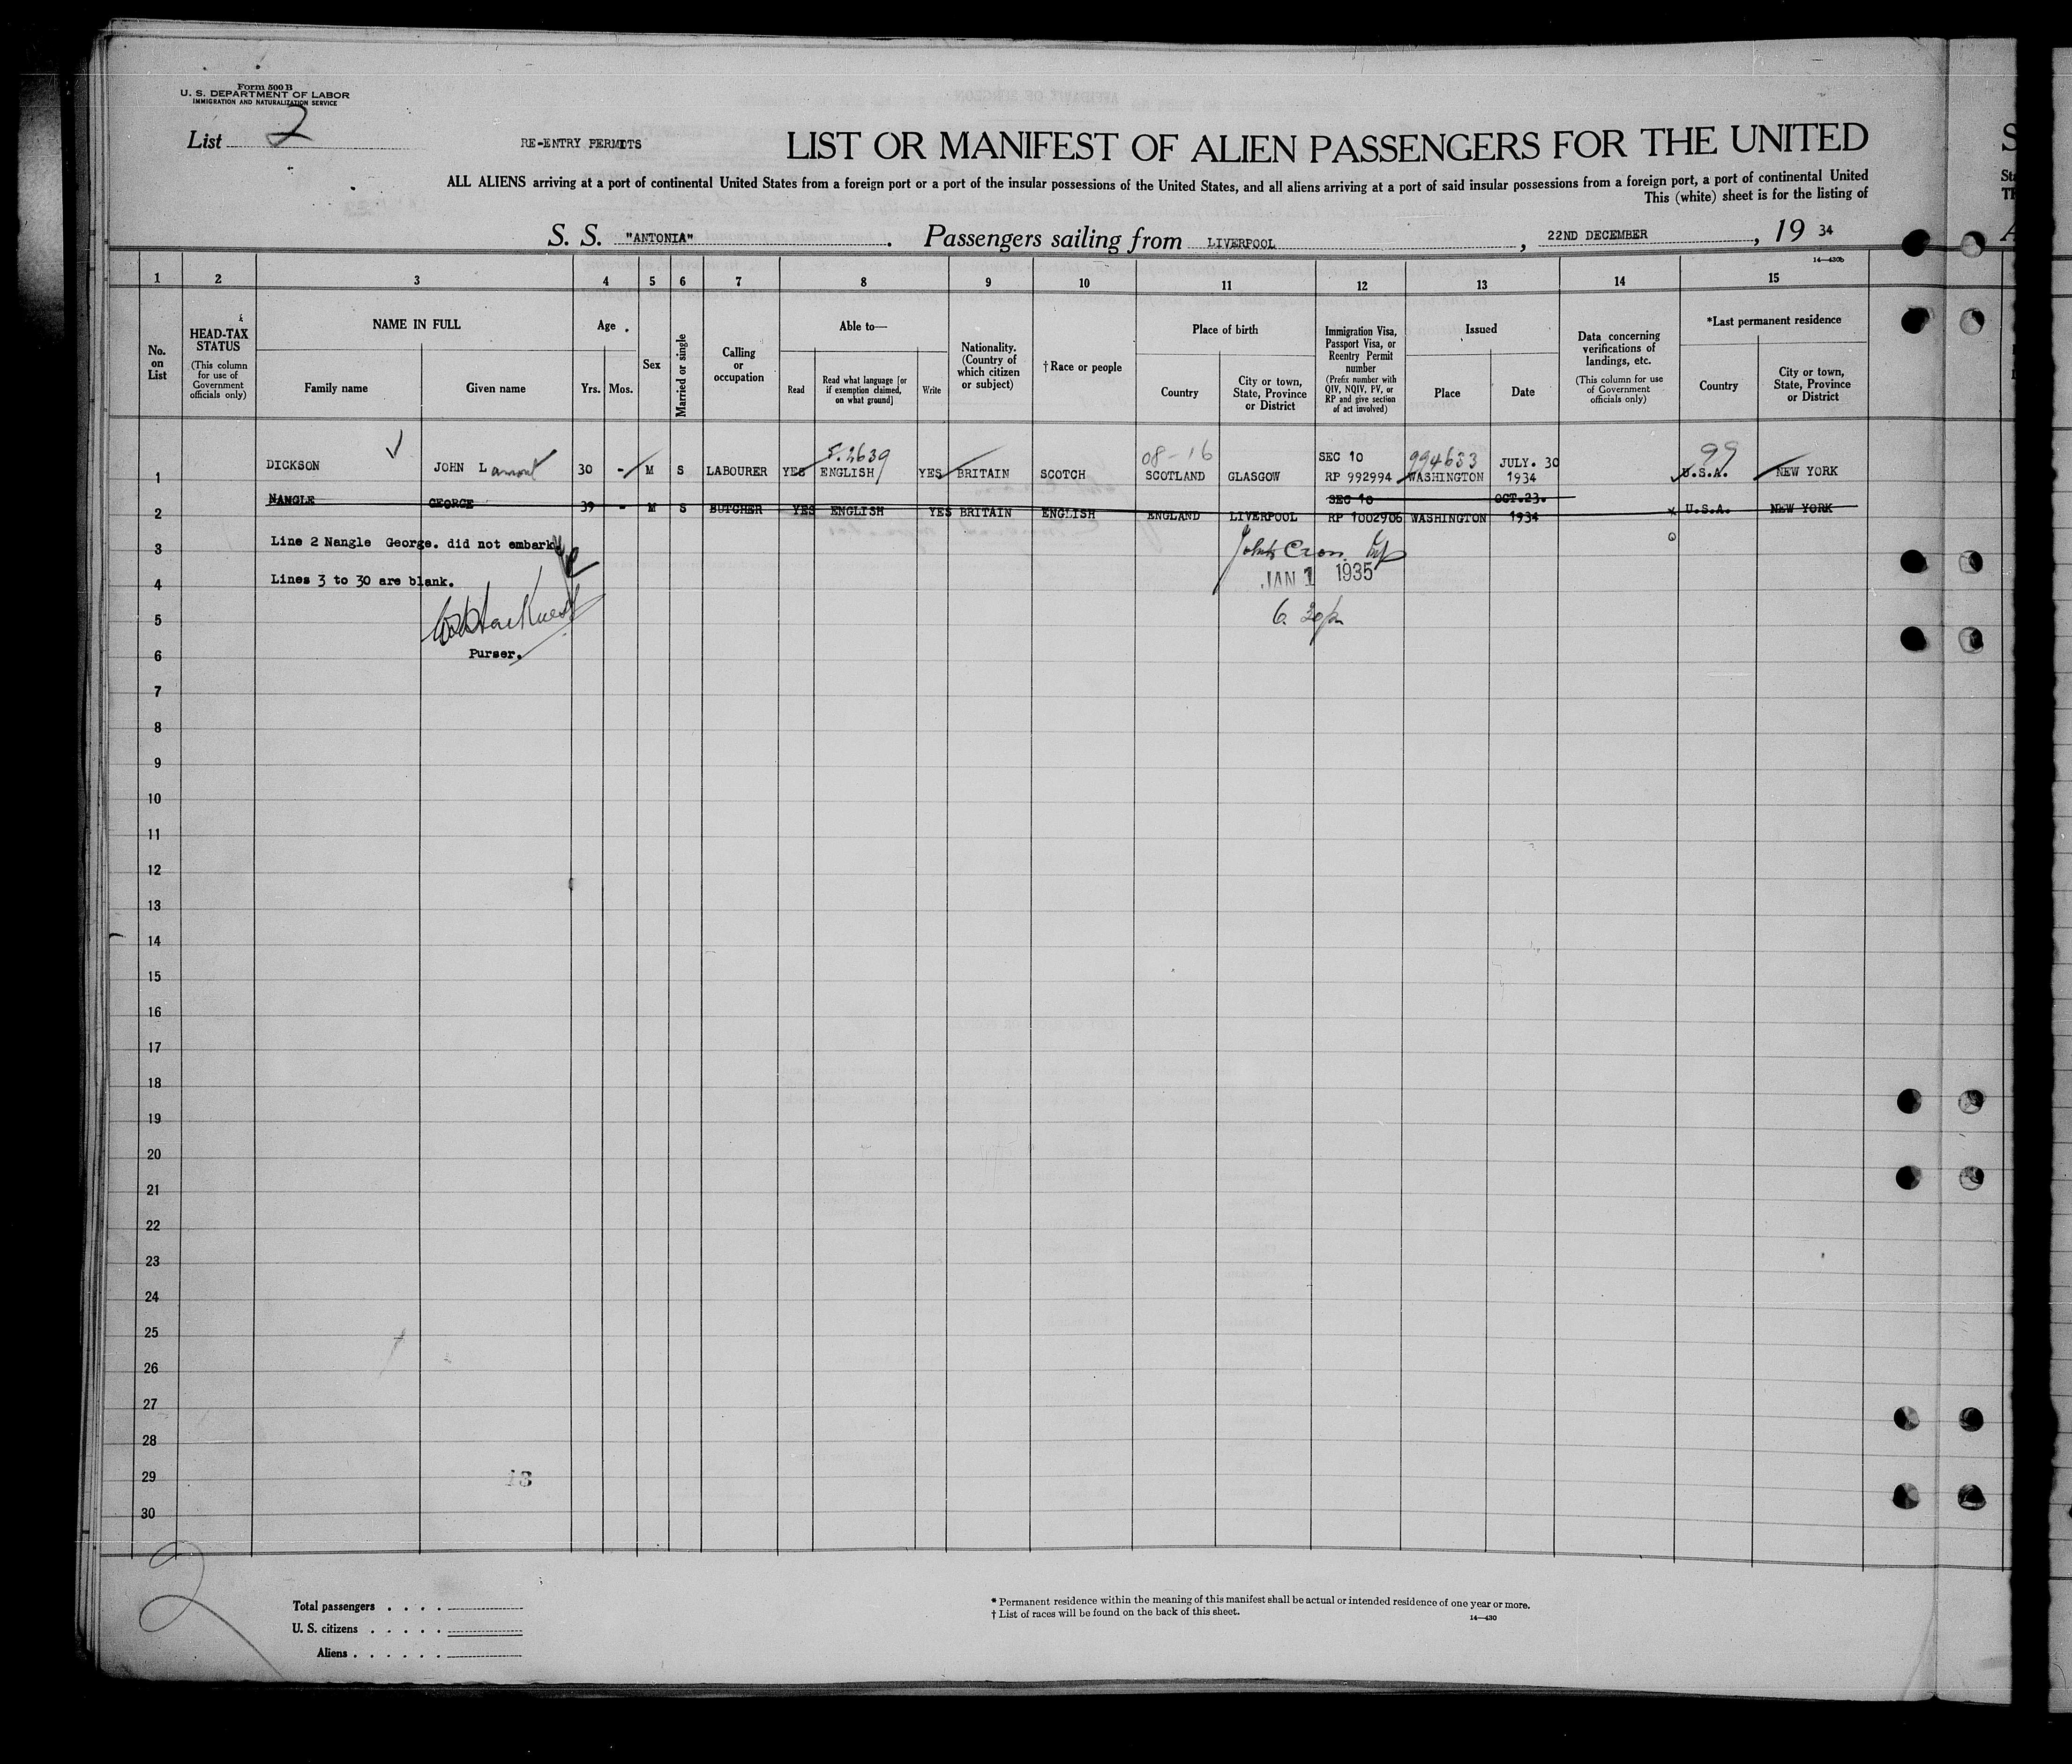 Form 500 B
U. S. DEPARTMENT OF LABOR
IMMIGRATION AND NATURALIZATION SERVICE
List 2
RE-ENTRY PERMITS
LIST OR MANIFEST OF ALIEN PASSENGERS FOR THE UNITED
ALL ALIENS arriving at a port of continental United States from a foreign port or a port of the insular possessions of the United States, and all aliens arriving at a port of said insular possessions from a foreign port, a port of continental United
This (white) sheet is for the listing of
S. S. "ANTONIA". Passengers sailing from LIVERPOOL, 22ND DECEMBER, 19 34
14—430b
1 2 3 4 5 6 7 8 9 10 11 12 13 14 15
No. on List
HEAD-TAX STATUS
(This column for use of Government officials only)
NAME IN FULL
Family name
Given name
Age
Yrs.
Mos.
Sex
Married or single
Calling or occupation
Able to—
Read
Read what language [or if exemption claimed, on what ground]
Write
Nationality. (Country of which citizen or subject)
† Race or people
Place of birth
Country
City or town, State, Province or District
Immigration Visa, Passport Visa, or Reentry Permit number
(Prefix number with QIV, NQIV, PV, or RP and give section of act involved)
Issued
Place
Date
Data concerning verifications of landings, etc.
(This column for use of Government officials only)
*Last permanent residence
Country
City or town, State, Province or District
5.2639
08-16
SEC 10
994633
JULY. 30
99
1 DICKSON JOHN Lamont 30 - M S LABOURER YES ENGLISH YES BRITAIN SCOTCH SCOTLAND GLASGOW RP 992994 WASHINGTON 1934 U.S.A. NEW YORK
SEC 10
OCT.23.
2 NANGLE GEORGE 39 - M S BUTCHER YES ENGLISH YES BRITAIN ENGLISH ENGLAND LIVERPOOL RP 1002906 WASHINGTON 1934 x U.S.A. NEW YORK
3 Line 2 Nangle George. did not embark
JAN 1 1935
4 Lines 3 to 30 are blank.
5
6. 30pm
6 Purser.
7
8
9
10
11
12
13
14
15
16
17
18
19
20
21
22
23
24
25
26
27
28
29
13
30
2
Total passengers . . . .
U. S. citizens . . . . .
Aliens . . . . . .
* Permanent residence within the meaning of this manifest shall be actual or intended residence of one year or more.
† List of races will be found on the back of this sheet.
14—430